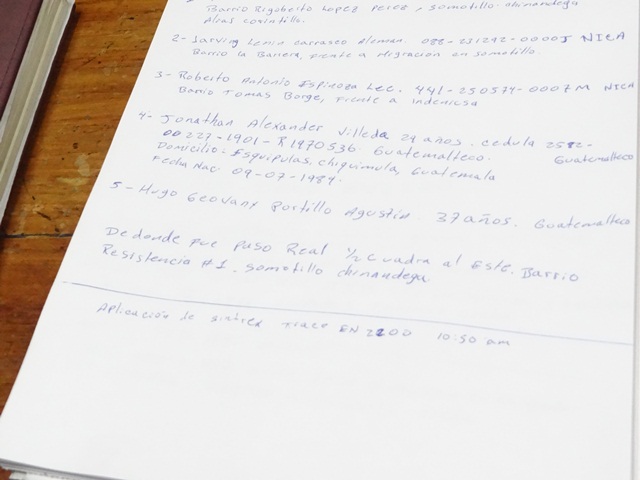 Barrio Rigoberto Lopez Perez, Somotillo-chinandega
Alias
2- Jarving Lenin carrasco Aleman. 088-231292-0000J NICA
Barrio la Barrera, frente a Migracion en somotillo.
3- Roberto Antonio Espinoza Lec. 441-250574-0007M NICA
Barrio Tomas Borge, Frente a
4- Jonathan Alexander Villeda 29 años. cedula 2582-
00227-1901-R1970536 Guatemalteco. Guatemalteco
Domicilio: Esquipulas, chiquimula, Guatemala
Fecha Nac. 09-07-1989.
5- Hugo Geovany Portillo Agustin. 37 años. Guatemalteco
De donde fue Paso Real 1/2 cuadra al Este. Barrio
Resistencia #1. somotillo chinandega.
Aplicación de Trace EN 2200 10:50 am